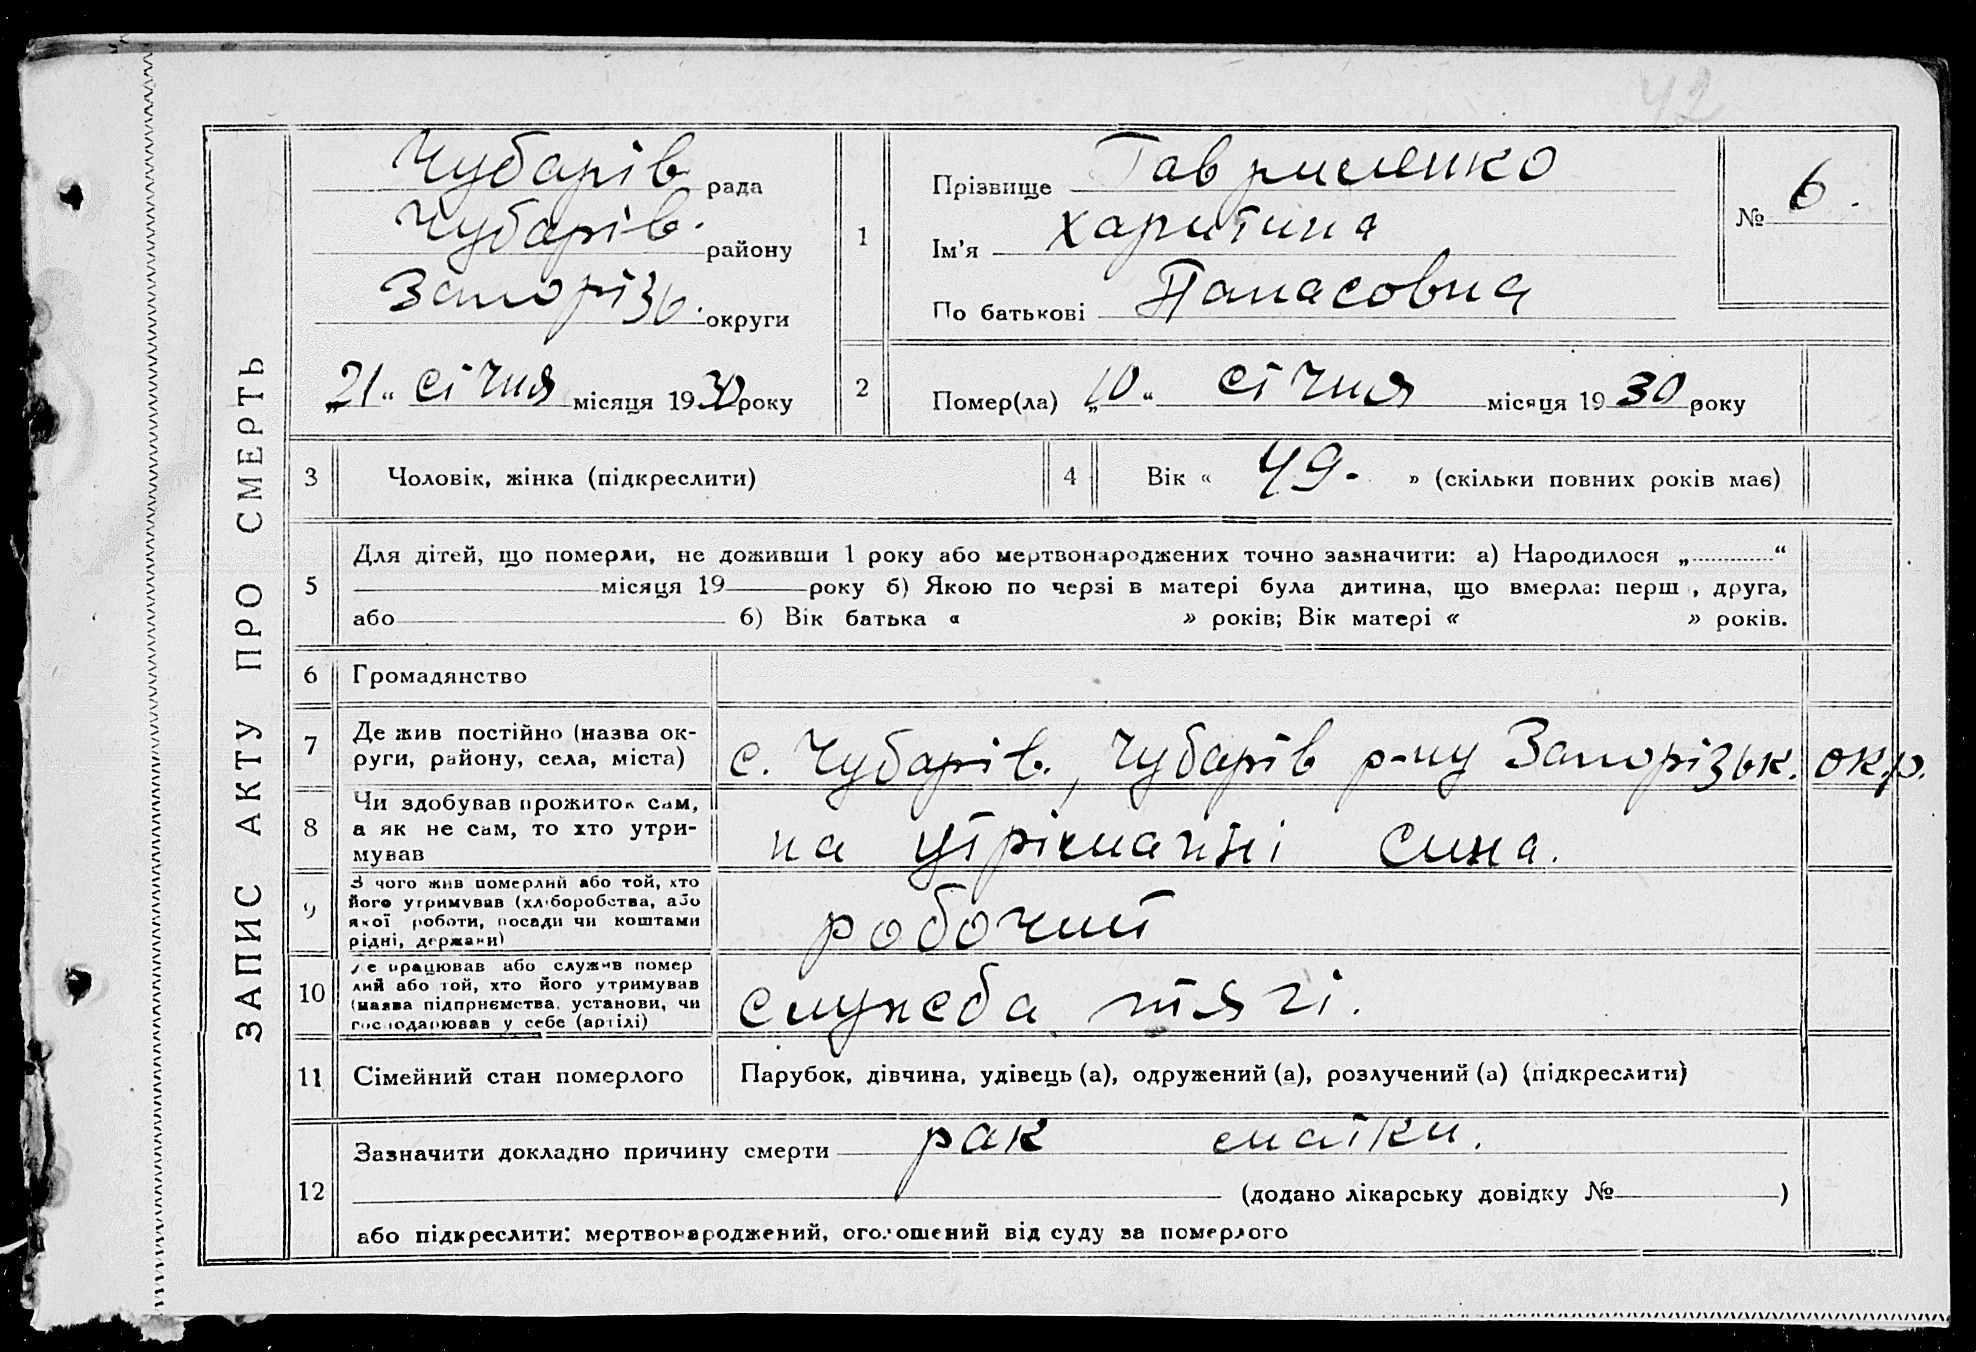 42
ЗАПИС АКТУ ПРО СМЕРТЬ
Чубарів рада
Чубарів. району
Запорізь. округи
„21“ січня місяця 1930 року
1
Прізвище Гавриленко
Ім'я Харитина
По батькові Панасовна
№ 6.
2
Помер(ла) „10“ січня місяця 1930 року
3
Чоловік, жінка (підкреслити)
4
Вік « 49. » (скільки повних років має)
5
Для дітей, що померли, не доживши 1 року або мертвонароджених точно зазначити: а) Народилося „ “
місяця 19 року б) Якою по черзі в матері була дитина, що вмерла: перш , друга,
або б) Вік батька « » років; Вік матері « » років.
6
Громадянство
7
Де жив постійно (назва ок-
руги, району, села, міста)
с. Чубарів., Чубарів р-ну Запорізьк. окр.
8
Чи здобував прожиток сам,
а як не сам, то хто утри-
мував
на утріманні сина.
9
З чого жив померлий або той, хто
його утримував (хліборобства, або
якої роботи, посади чи коштами
рідні, держави)
робочий
10
Де працював або служив помер
лий або той, хто його утримував
(назва підприємства, установи, чи
господарював у себе (артілі)
служба тягі.
11
Сімейний стан померлого
Парубок, дівчина, удівець (а), одружений (а), розлучений (а) (підкреслити)
12
Зазначити докладно причину смерти рак матки.
(додано лікарську довідку № )
або підкреслити: мертвонароджений, оголошений від суду за померлого